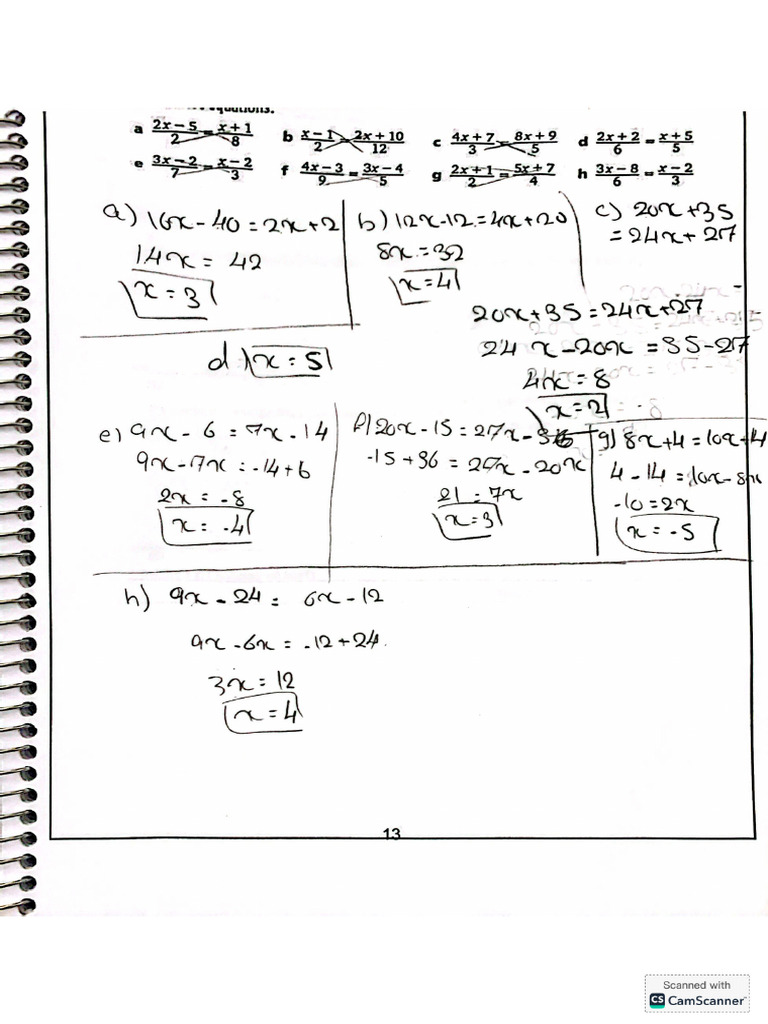 equations.
a (2x – 5)/2 = (x + 1)/8 b (x – 1)/2 = (2x + 10)/12 c (4x + 7)/3 = (8x + 9)/5 d (2x + 2)/6 = (x + 5)/5
e (3x – 2)/7 = (x – 2)/3 f (4x – 3)/9 = (3x – 4)/5 g (2x + 1)/2 = (5x + 7)/4 h (3x – 8)/6 = (x – 2)/3
a) 16x - 40 = 2x + 2
14x = 42
x = 3
b) 12x - 12 = 4x + 20
8x = 32
x = 4
c) 20x + 35
= 24x + 27
20x + 35 = 24x + 27
24x - 20x = 35 - 27
4x = 8
x = 2
d) x = 5
e) 9x - 6 = 7x - 14
9x - 7x = -14 + 6
2x = -8
x = -4
f) 20x - 15 = 27x - 36
-15 + 36 = 27x - 20x
21 = 7x
x = 3
g) 8x + 4 = 10x + 4
4 - 14 = 10x - 8x
-10 = 2x
x = -5
h) 9x - 24 = 6x - 12
9x - 6x = -12 + 24
3x = 12
x = 4
13
Scanned with
CS CamScanner